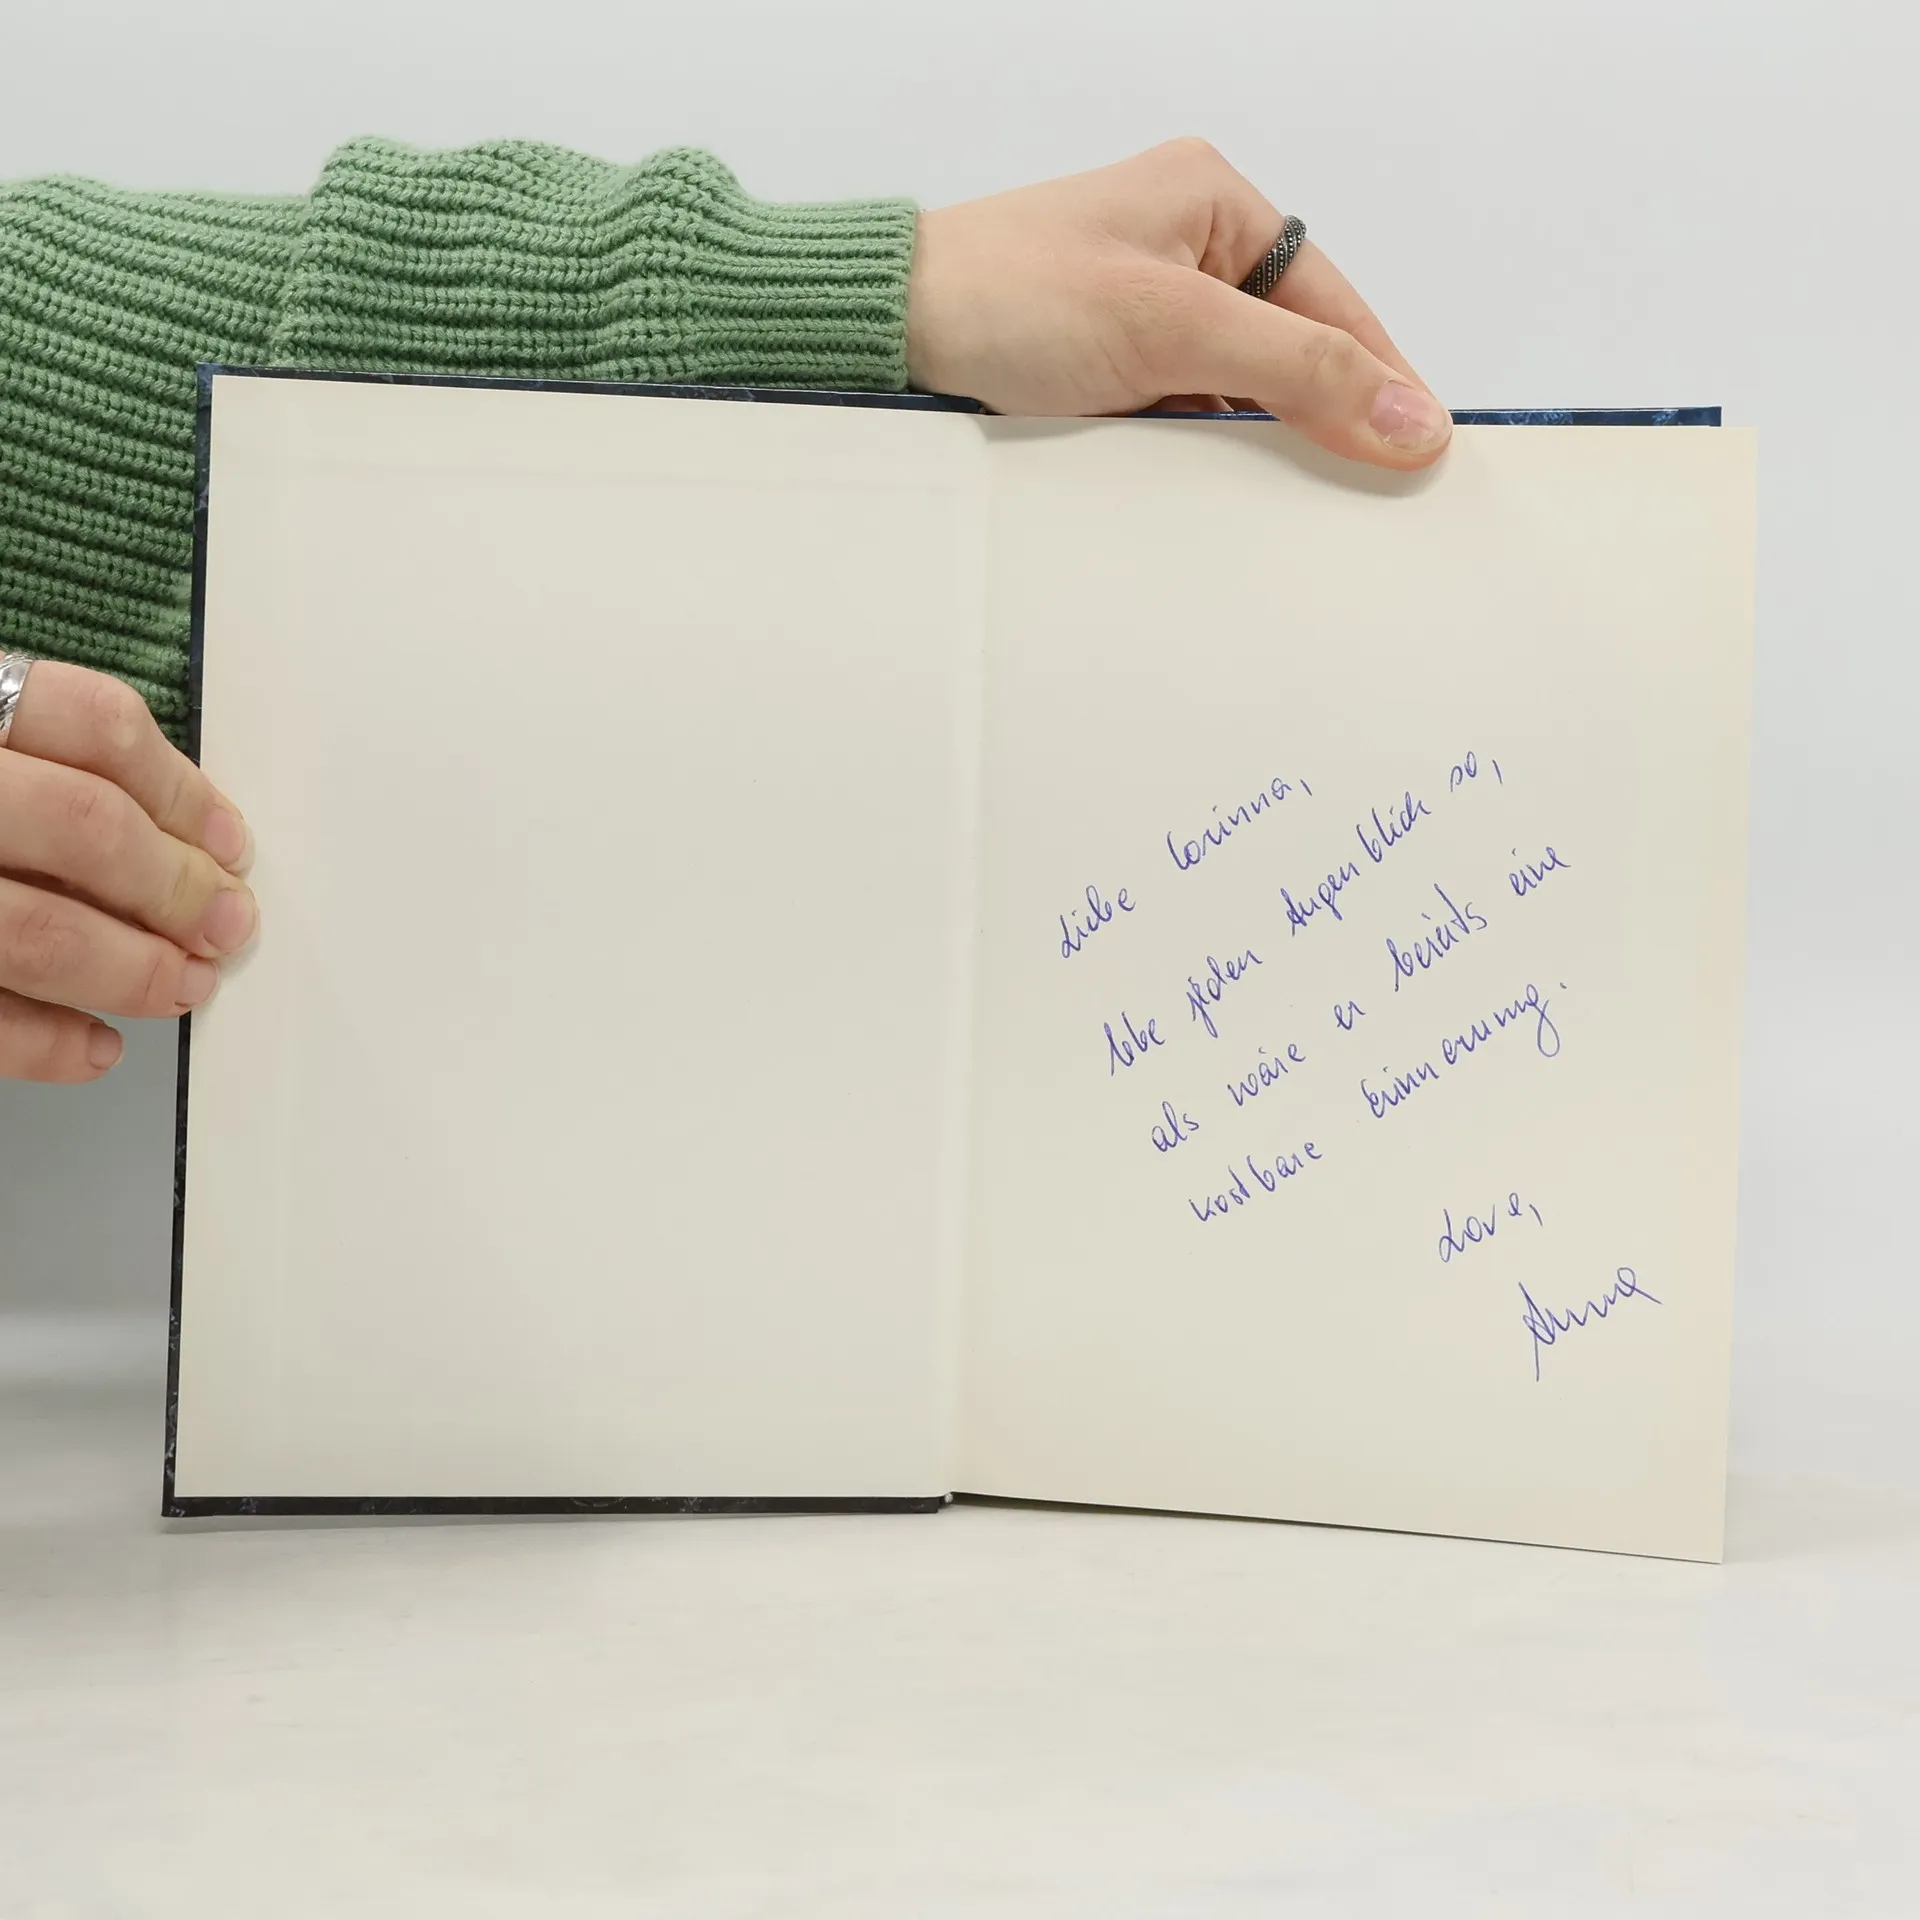 Liebe Corinna,
lebe jeden Augenblick so,
als wäre er bereits eine
kostbare Erinnerung.
Love,
Anna